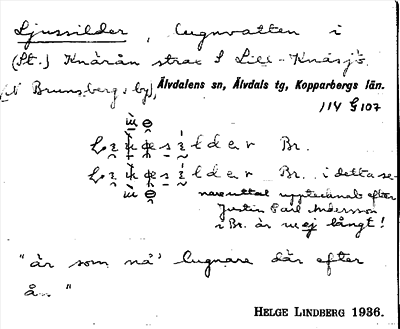 Ljussilder, lugnvatten i
(St.) Knärån strax S Lill-Knäsjö.
(i N Brunsberg, by), Älvdalens sn, Älvdals tg, Kopparbergs län.
114 G 107
Br.
Br. i detta se-
nare uttal upptecknat efter
Justin Carl Andersson
i Br. är ej långt!
"är som nå' lugnare där efter
å.."
HELGE LINDBERG 1936.